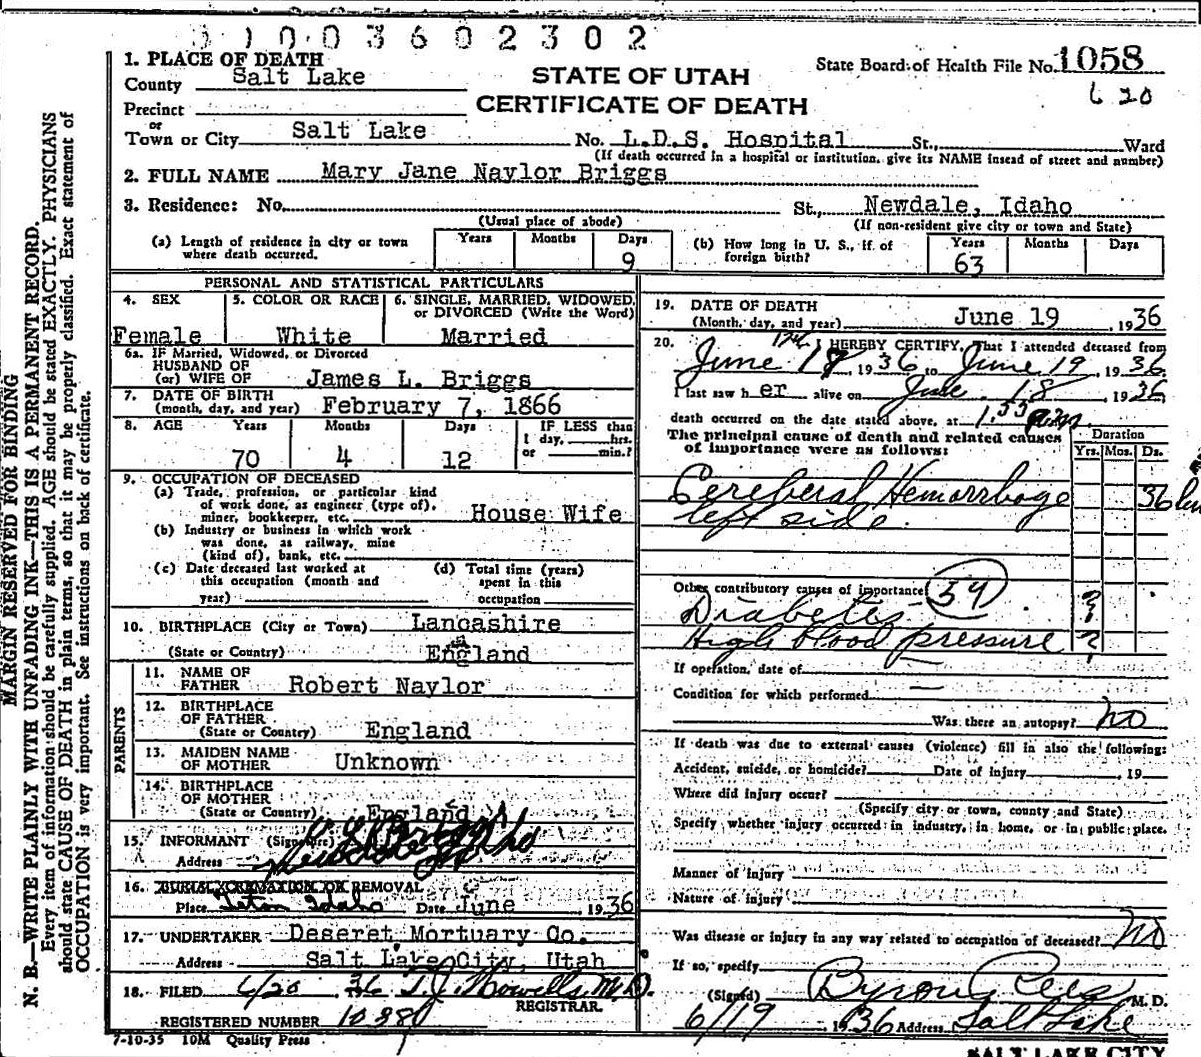 0 1 0 0 3 6 0 2 3 0 2
1. PLACE OF DEATH
County Salt Lake
STATE OF UTAH
CERTIFICATE OF DEATH
State Board of Health File No. 1058
620
Precinct
or
Town or City Salt Lake No. L.D.S. Hospital St., Ward
(If death occurred in a hospital or institution, give its NAME insead of street and number)
2. FULL NAME Mary Jane Naylor Briggs
3. Residence: No. St., Newdale, Idaho
(Usual place of abode) (If non-resident give city or town and State)
(a) Length of residence in city or town where death occurred. Years Months Days 9
(b) How long in U. S., if of foreign birth? Years 63 Months Days
PERSONAL AND STATISTICAL PARTICULARS
4. SEX Female
5. COLOR OR RACE White
6. SINGLE, MARRIED, WIDOWED, or DIVORCED (Write the Word) Married
6a. IF Married, Widowed, or Divorced
HUSBAND OF
(or) WIFE OF James L. Briggs
7. DATE OF BIRTH
(month, day, and year) February 7, 1866
8. AGE Years 70 Months 4 Days 12
IF LESS than
1 day, hrs.
or min.?
9. OCCUPATION OF DECEASED
(a) Trade, profession, or particular kind
of work done, as engineer (type of),
miner, bookkeeper, etc. House Wife
(b) Industry or business in which work
was done, as railway, mine
(kind of), bank, etc.
(c) Date deceased last worked at
this occupation (month and
year)
(d) Total time (years)
spent in this
occupation
10. BIRTHPLACE (City or Town) Lancashire
(State or Country) England
PARENTS
11. NAME OF
FATHER Robert Naylor
12. BIRTHPLACE
OF FATHER
(State or Country) England
13. MAIDEN NAME
OF MOTHER Unknown
14. BIRTHPLACE
OF MOTHER
(State or Country) England
15. INFORMANT (Signature) Briggs
Address Newdale Idaho
16. BURIAL, CREMATION OR REMOVAL
Place Teton Idaho Date June 1936
17. UNDERTAKER Deseret Mortuary Co.
Address Salt Lake City, Utah
18. FILED 6/20 36 T. J. Howells M.D.
REGISTRAR.
REGISTERED NUMBER 1038
7-10-35 10M Quality Press
19. DATE OF DEATH
(Month, day, and year) June 19 1936
20. I HEREBY CERTIFY, That I attended deceased from
June 18 1936 to June 19, 1936
I last saw her alive on June 18 1936
death occurred on the date stated above, at 1:55
The principal cause of death and related causes
of importance were as follows:
Duration
Yrs. Mos. Ds.
Cerebral Hemorrhage 36
left side.
Other contributory causes of importance: 59
Diabetes ?
High blood pressure ?
If operation, date of
Condition for which performed
Was there an autopsy? No
If death was due to external causes (violence) fill in also the following:
Accident, suicide, or homicide? Date of injury , 19
Where did injury occur?
(Specify city or town, county and State)
Specify whether injury occurred in industry, in home, or in public place.
Manner of injury
Nature of injury
Was disease or injury in any way related to occupation of deceased? No
If so, specify
(Signed) Byron Rees M. D.
6/19 1936 Address Salt Lake
SALT LAKE CITY
MARGIN RESERVED FOR BINDING
N. B.—WRITE PLAINLY WITH UNFADING INK—THIS IS A PERMANENT RECORD.
Every item of information should be carefully supplied. AGE should be stated EXACTLY. PHYSICIANS
should state CAUSE OF DEATH in plain terms, so that it may be properly classified. Exact statement of
OCCUPATION is very important. See instructions on back of certificate.